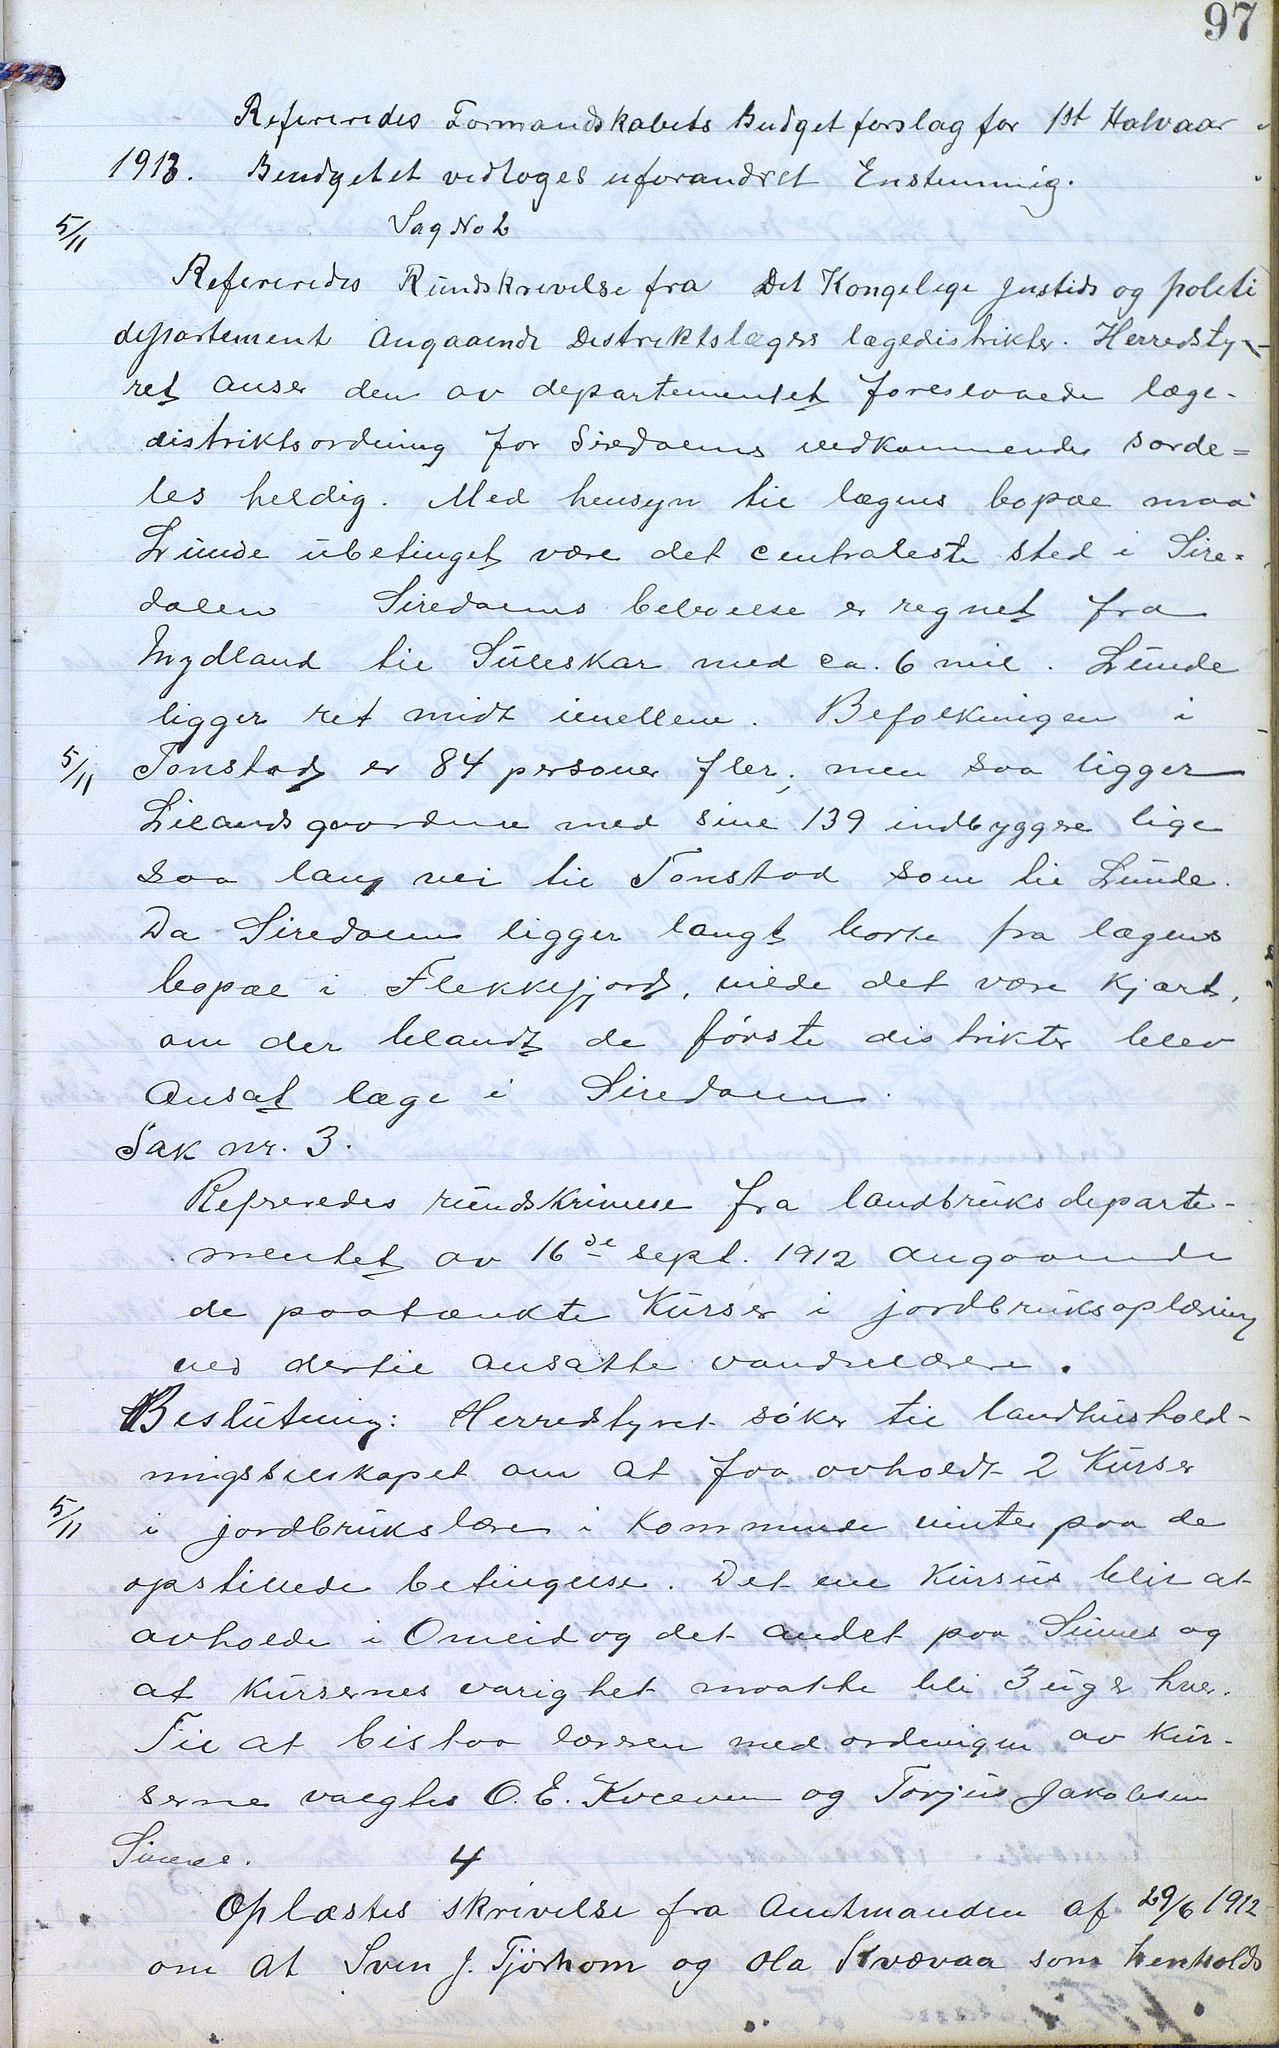 97
Refereredes Formandskabets Budgetforslag for 1st Halvaar
1913. Bendgetet vedtoges uforandret Enstemmig.
5/11
Sag No 2
Refereredes Rundskrivelse fra Det Kongelige Justids og politi
departement angaaende Destriktslægers lægedistrikter. Herredsty-
ret anser den av departementet foreslaaede læge-
distriktsordning for Siredalens vedkommende særde=
les heldig. Med hensyn til lægens bopæl maa
Lunde ubetinget være det centraleste sted i Sire=
dalen Siredalens bebyggelse er regnet fra
Mydland til Suleskar med ca. 6 mil. Lunde
ligger ret midt imellem. Befolkningen i
5/11 Tonstad er 84 personer fler, men saa ligger
Lilandsgaardene med sine 139 indbyggere lige
saa lang vei til Tonstad som til Lunde.
Da Siredalen ligger langt borte fra lægens
bopæl i Flekkefjord, vilde det være kjært,
om der blandt de første distrikter blev
ansat læge i Siredalen.
Sak nr. 3.
Refereredes rundskrivelse fra landbruksdeparte-
mentet av 16de sept. 1912 angaaende
de paatænkte Kurser i jordbruksoplæring
ved dertil ansatte vandrelærere.
Beslutning: Herredstyret søker til landhushold-
ningsselskapet om at faa avholdt 2 Kurser
5/11 i jordbrukslære i kommende vinter paa de
opstillede betingelser. Det ene Kursus blir at
avholde i Omlid og det andet paa Sinnes og
at Kursernes varighet maatte bli 3 uger hver.
Til at bistaa læreren med ordningen av Kur-
serne valgtes O. E. Kvæven og Torjus Jakobsen
Sinnes.
4
Oplæstes skrivelse fra Amtmanden af 29/6 1912
om at Sven J. Tjørhom og Ola Kvævaa som henholds